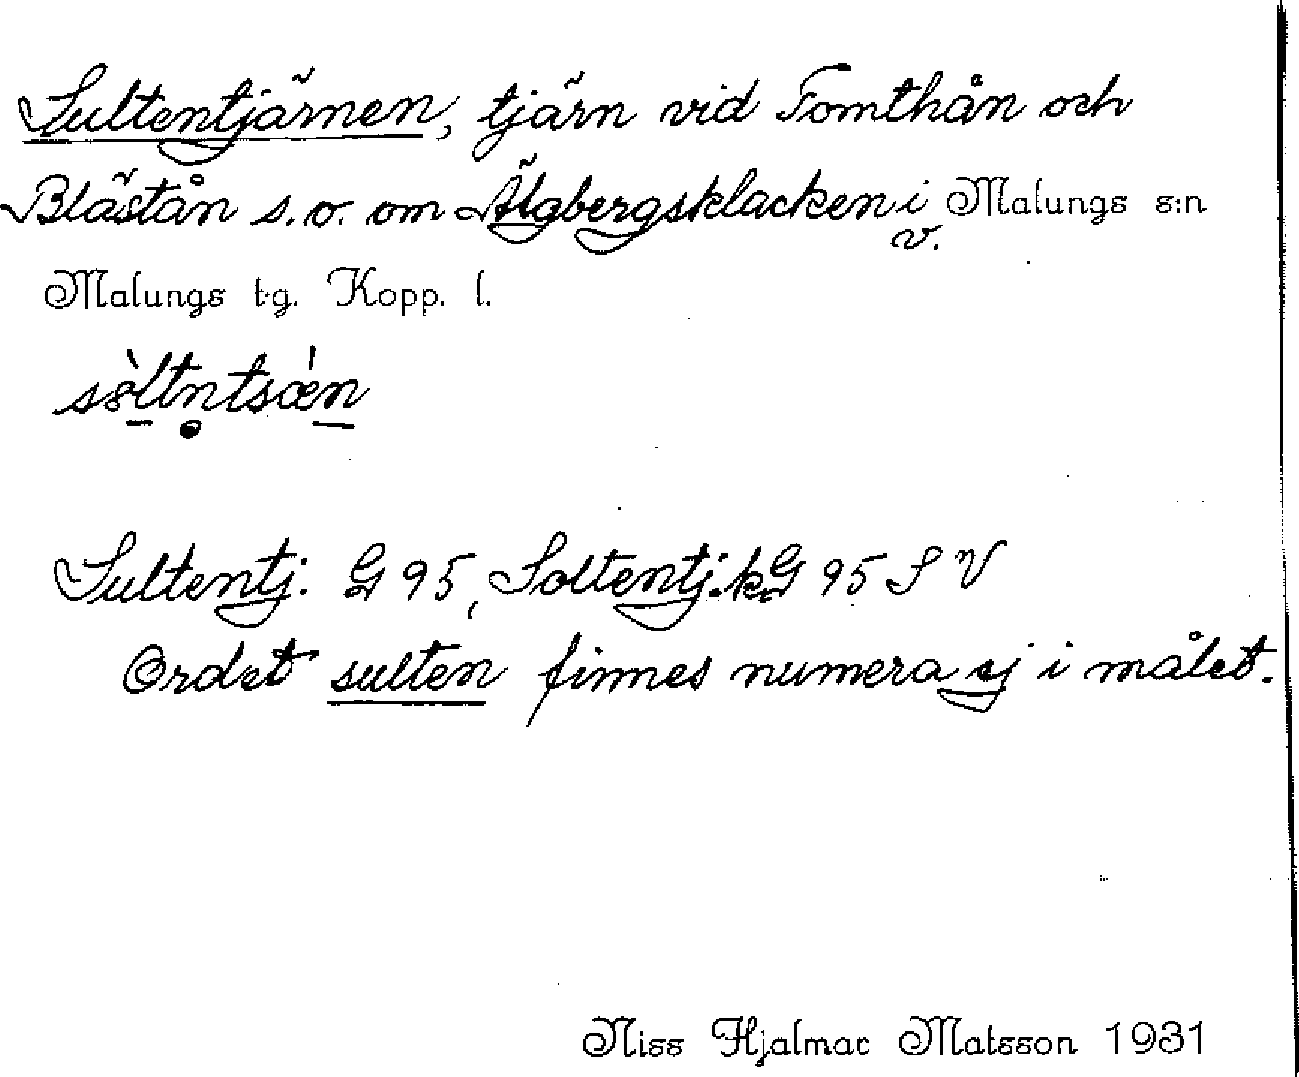 Sultentjärnen, tjärn vid Tomthån och
Blästån s.o. om Älgbergsklacken i Malungs s:n
v.
Malungs tg. Kopp. l.
Sultentj. G 95, Soltentj. kG 95 S V
Ordet sulten finnes numera ej i målet.
Niss Hjalmar Matsson 1931